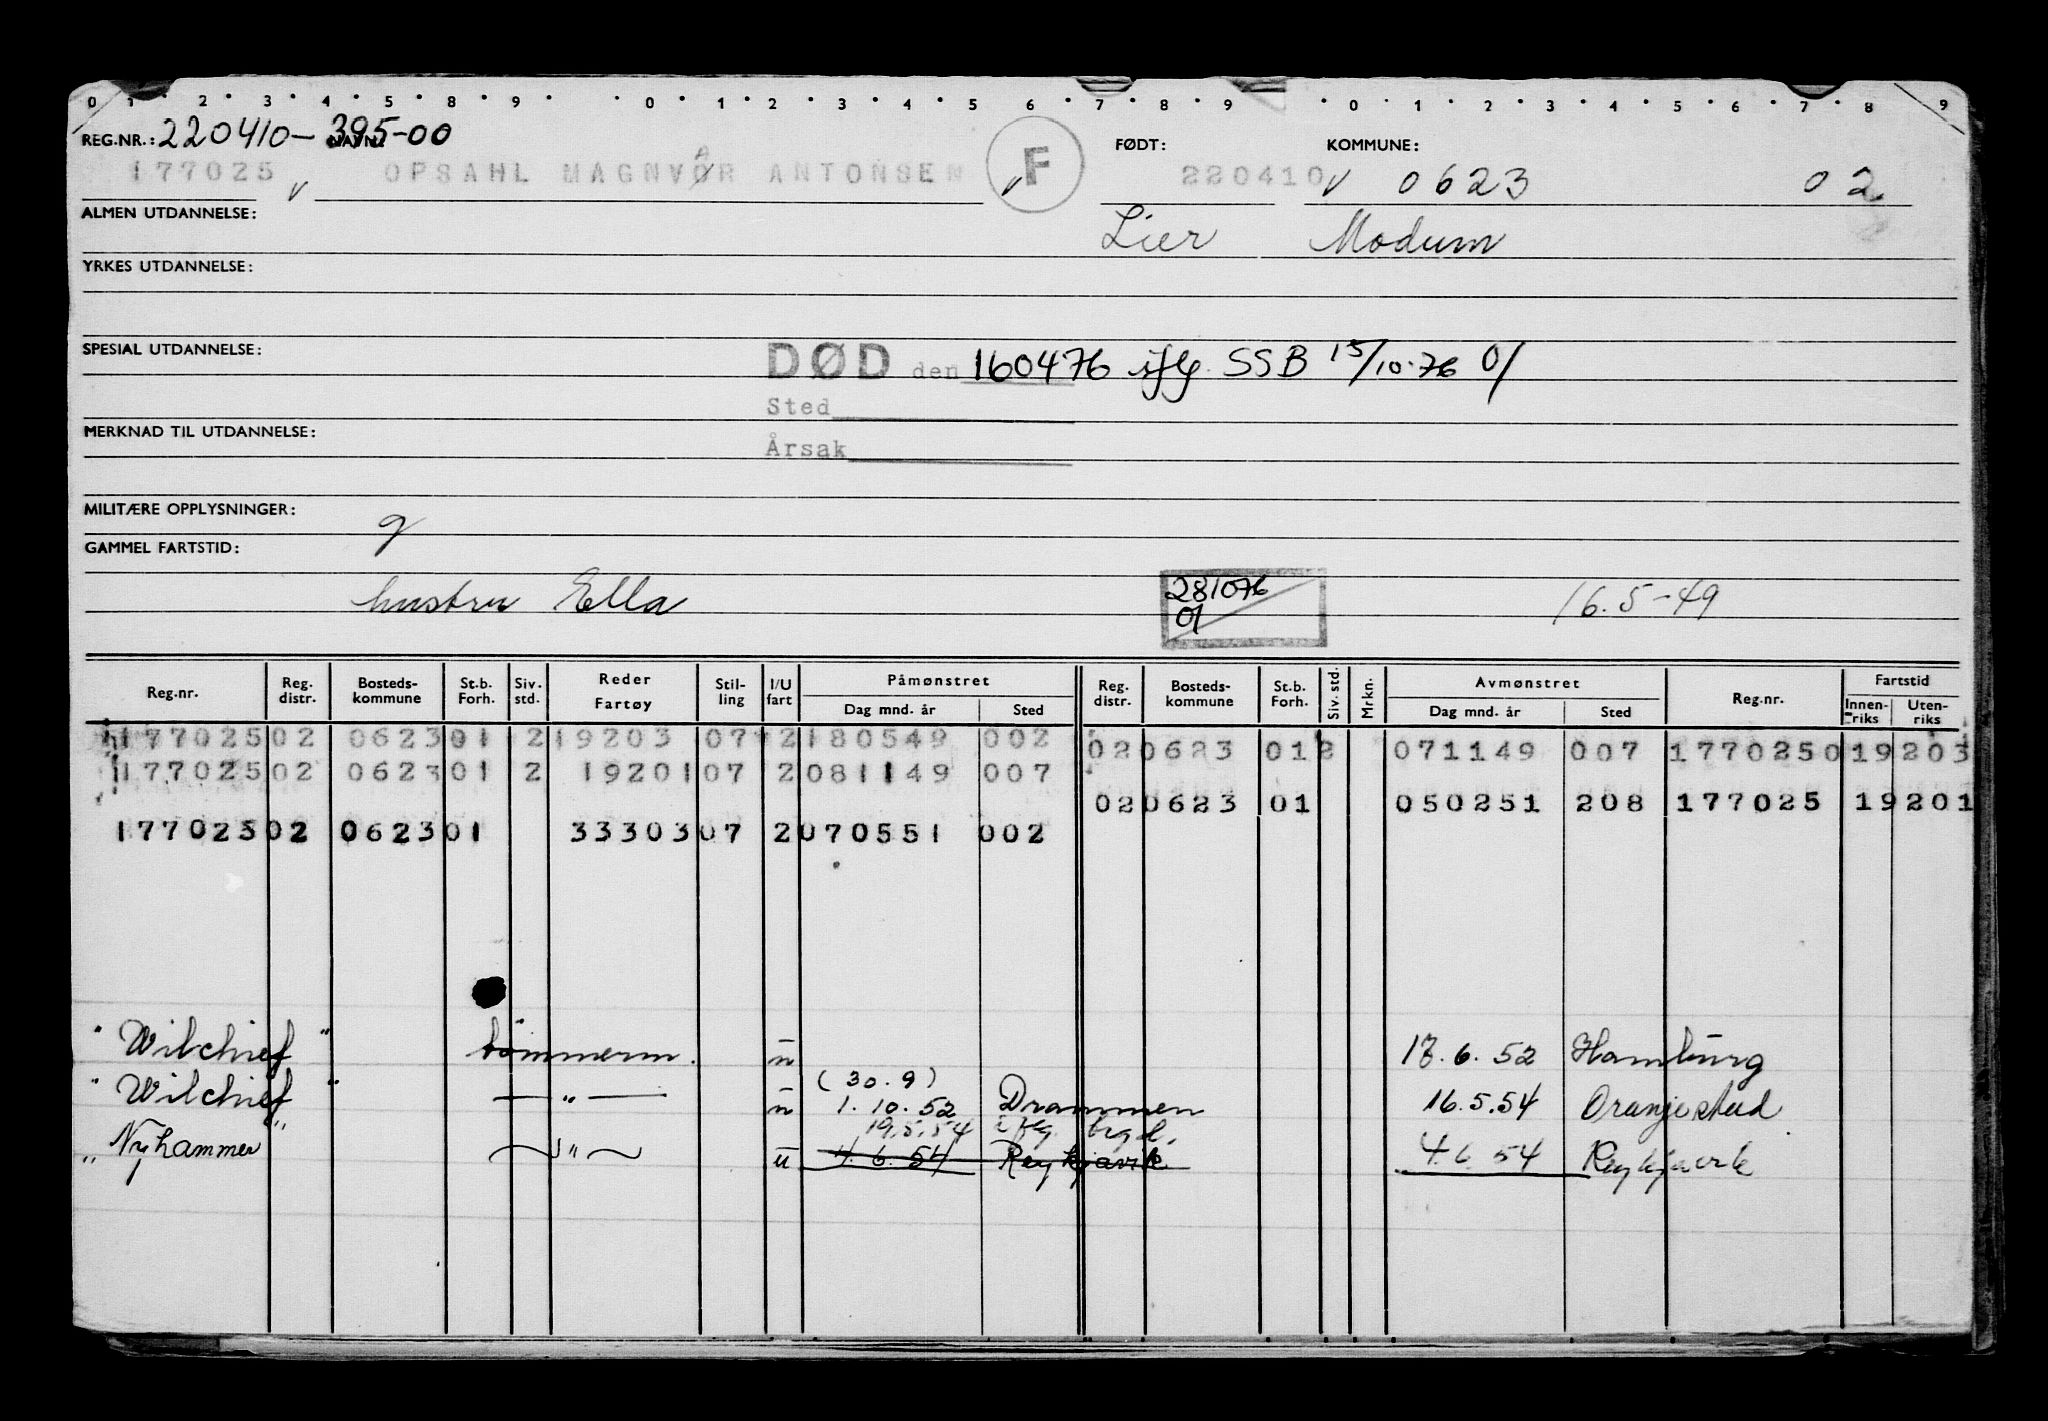 0 1 2 3 4 5 8 9 0 1 2 3 4 5 6 7 8 9 0 1 2 3 4 5 6 7 8 9
REG.NR.: 220410-395-00 NAVN: FØDT: KOMMUNE:
177025 v OPSAHL MAGNVØR ANTONSEN A v F 220410 v 0623 02
ALMEN UTDANNELSE: Lier Modum
YRKES UTDANNELSE:
SPESIAL UTDANNELSE: DØD den 160476 iflg. SSB 15/10-76
Sted
MERKNAD TIL UTDANNELSE:
Årsak
MILITÆRE OPPLYSNINGER:
GAMMEL FARTSTID:
hustru Ella 281076 16.5-49
Reg.nr. Reg. distr. Bosteds-kommune St.b. Forh. Siv. std. Reder Fartøy Stil-ling I/U fart Påmønstret Dag mnd. år Sted Reg. distr. Bosteds-kommune St.b. Forh. Siv. std. Mrkn. Avmønstret Dag mnd. år Sted Reg.nr. Fartstid Innen-riks Uten-riks
177025 02 0623 01 2 19203 07 2 180549 002 02 0623 01 2 071149 007 177025 0 19 203
177025 02 0623 01 2 19201 07 2 081149 007
02 0623 01 050251 208 177025 19 201
177025 02 0623 01 33303 07 2 070551 002
"Wilchief" tømmerm. u 13.6.52 Hamburg
(30.9)
"Wilchief" — " — u 1.10.52 Drammen 16.5.54 Oranjestad
19.5.54 iflg.
"Nyhammer" — " — u 4.6.54 Reykjavik 4.6.54 Reykjavik